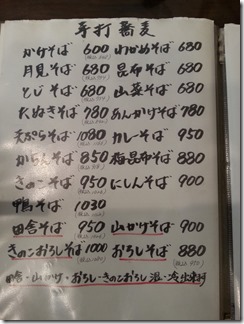 手打蕎麦
かけそば 600 わかめそば 680
月見そば 680 昆布そば 680
とじそば 680 山菜そば 680
たぬきそば 780 あんかけそば 780
天ぷらそば 1080 カレーそば 950
からんそば 850 梅昆布そば 880
きのこそば 950 にしんそば 900
鴨そば 1030
田舎そば 950 山かけそば 900
きのこおろしそば 1000 おろしそば 880
田舎・山かけ・おろし・きのこおろし 温・冷出来ます